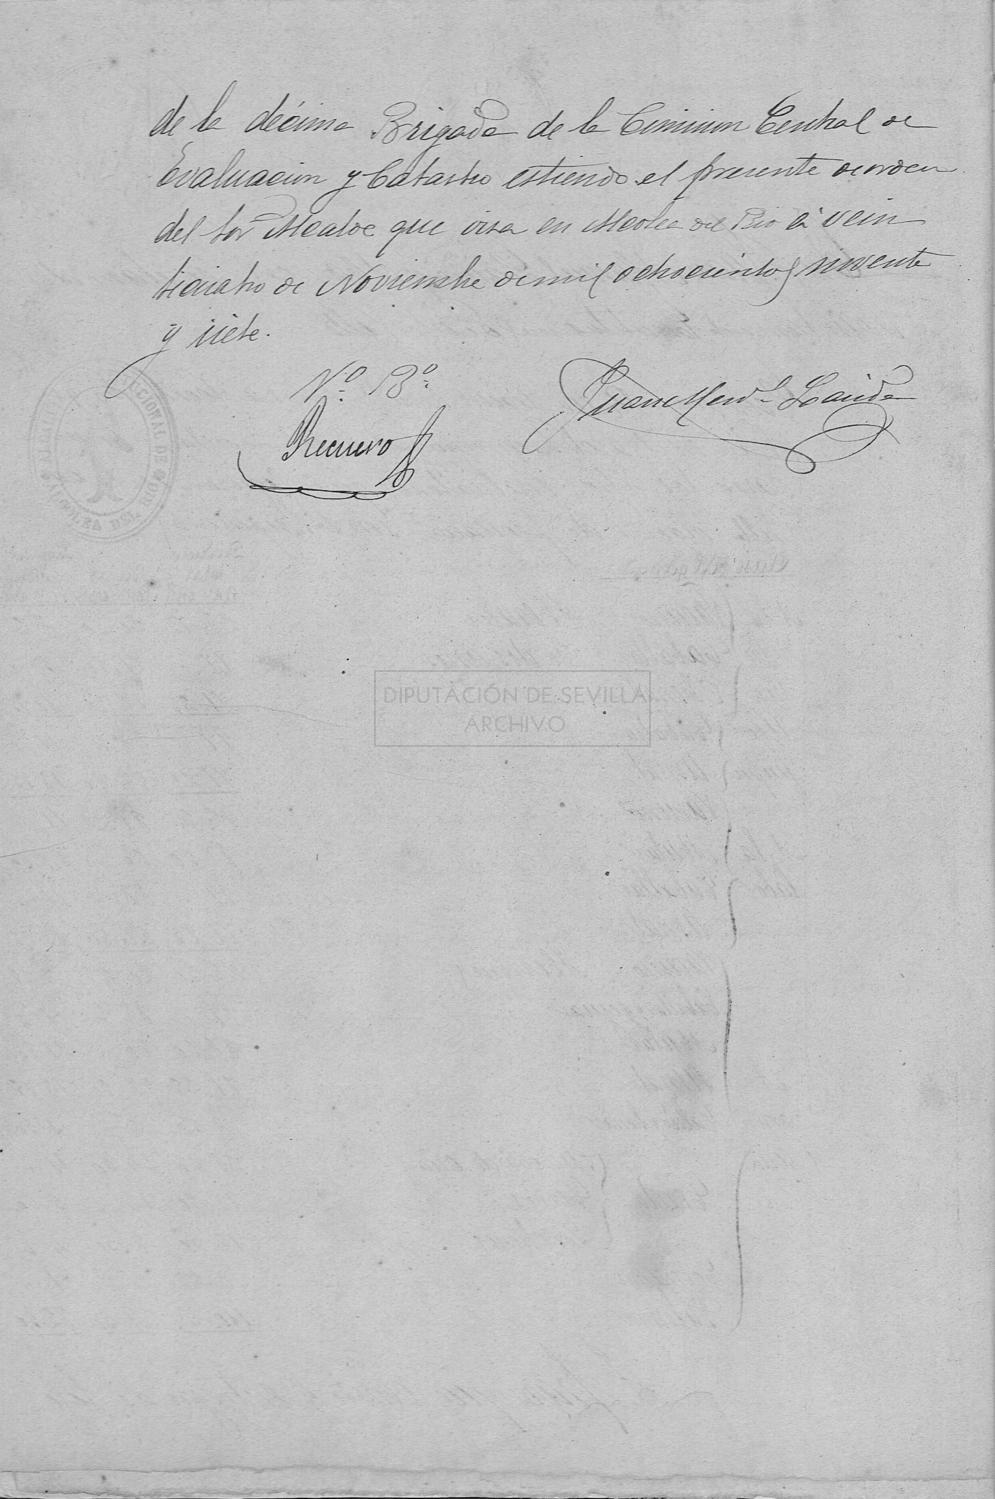 de la décima Brigada de la Comision Central de
Evaluacion y Catastro estiendo el presente de orden
del Sor Alcalde que visa en Alcolea del Rio á vein
ticuatro de Noviembre de mil ochocientos noventa
y siete.
Vº Bº
Recuero
Juan
DIPUTACIÓN DE SEVILLA
ARCHIVO